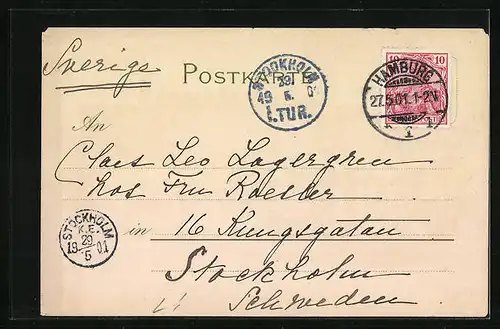 Sverige
POSTKARTE
STOCKHOLM
29
19 5. 01
1.TUR.
10 10
HAMBURG
27.5.01.1-2N.
* 1 *
An
Claes Leo Lagergren
hos Fru Roesler
in 16 Kungsgatan
Stockholm
Schweden
STOCKHOLM
K.E.
29
19 01
5